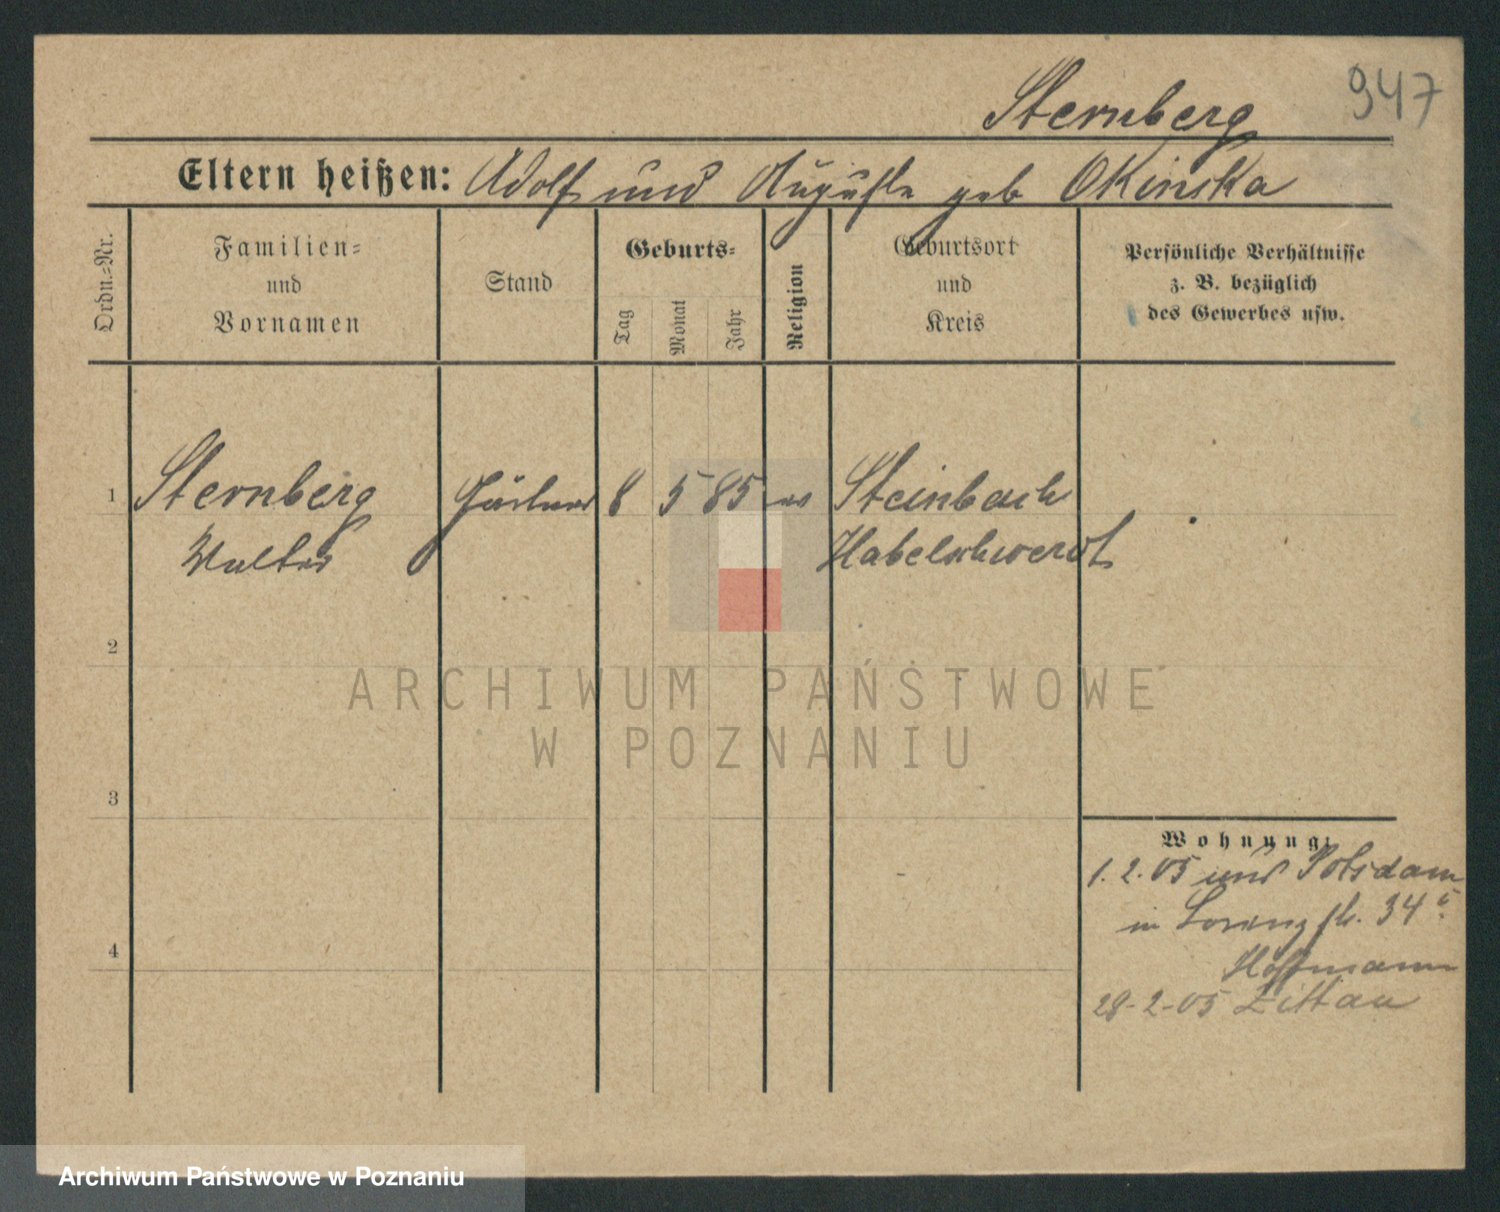 947
Sternberg
Eltern heißen: Adolf und Auguste geb Okinska
Ordn.=Nr.
Familien=
und
Vornamen
Stand
Geburts=
Tag
Monat
Jahr
Religion
Geburtsort
und
Kreis
Persönliche Verhältnisse
z. B. bezüglich
des Gewerbes usw.
1 Sternberg Gärtner 8 5 85 ev Steinbach
Walter Habelschwerdt
2
3
4
Wohnung:
1. 2. 05 und Potsdam
in str. 34
Hoffmann
28-2-05 Zittau
ARCHIWUM PAŃSTWOWE
W POZNANIU
Archiwum Państwowe w Poznaniu